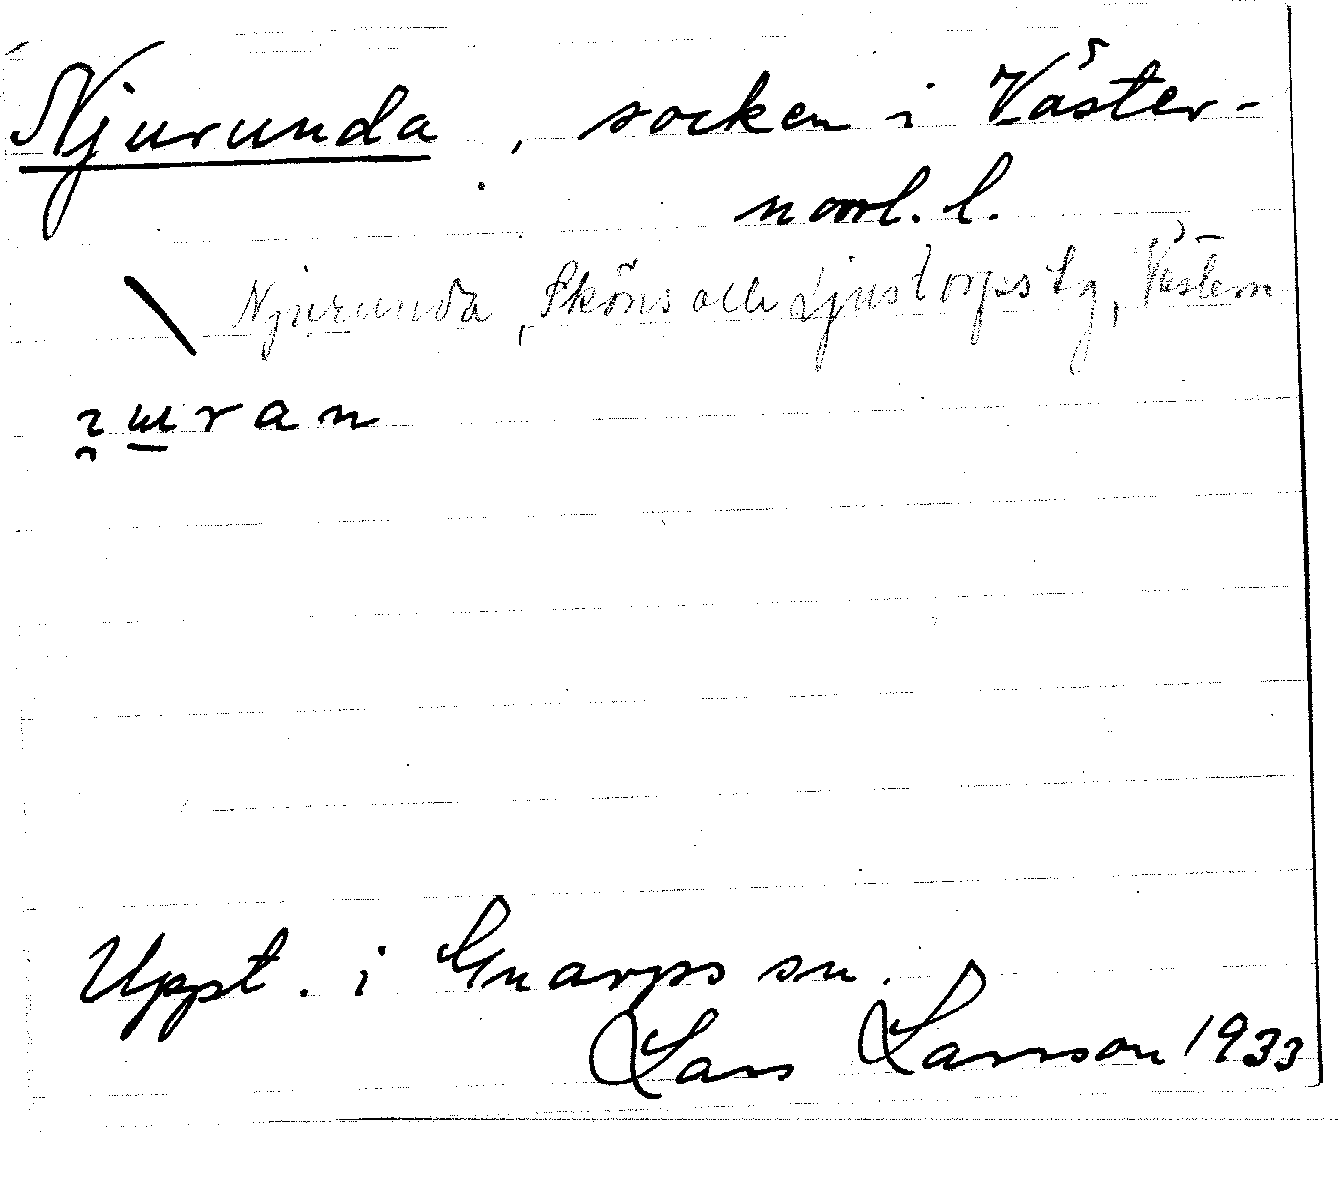 Njurunda, socken i Väster-
norrl. l.
Njurunda, Sköns och Ljustorps tg, Västern
Uppt. i Gnarps sn.
Lars Larsson 1933